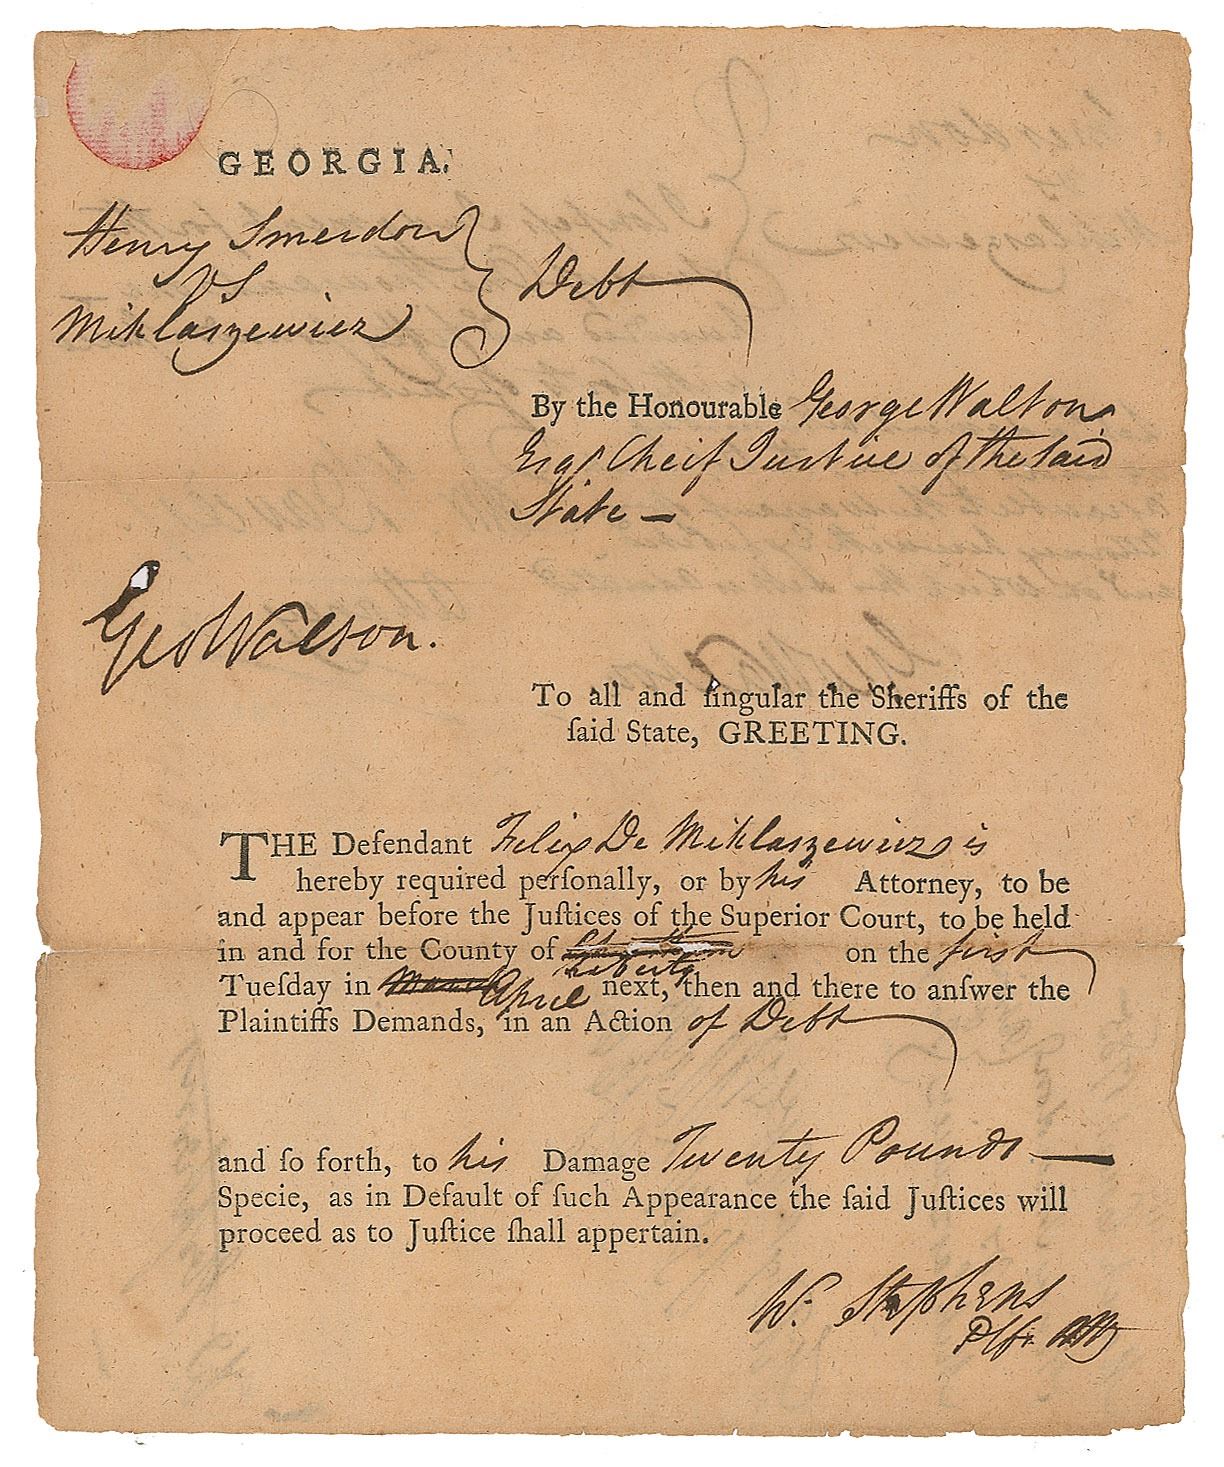 GEORGIA.
Henry Smerdon
VS
Miklaszewicz
Debt
By the Honourable George Walton
Esqr Cheif Justice of the said
State —
Geo Walton.
To all and ſingular the Sheriffs of the
ſaid State, GREETING.
THE Defendant Felix De Miklaszewicz is
hereby required perſonally, or by his Attorney, to be
and appear before the Juſtices of the Superior Court, to be held
in and for the County of Chatham on the first
Liberty
Tueſday in March April next, then and there to anſwer the
Plaintiffs Demands, in an Action of Debt
and ſo forth, to his Damage Twenty Pounds —
Specie, as in Default of ſuch Appearance the ſaid Juſtices will
proceed as to Juſtice ſhall appertain.
W. Stephens
Plfs Atty